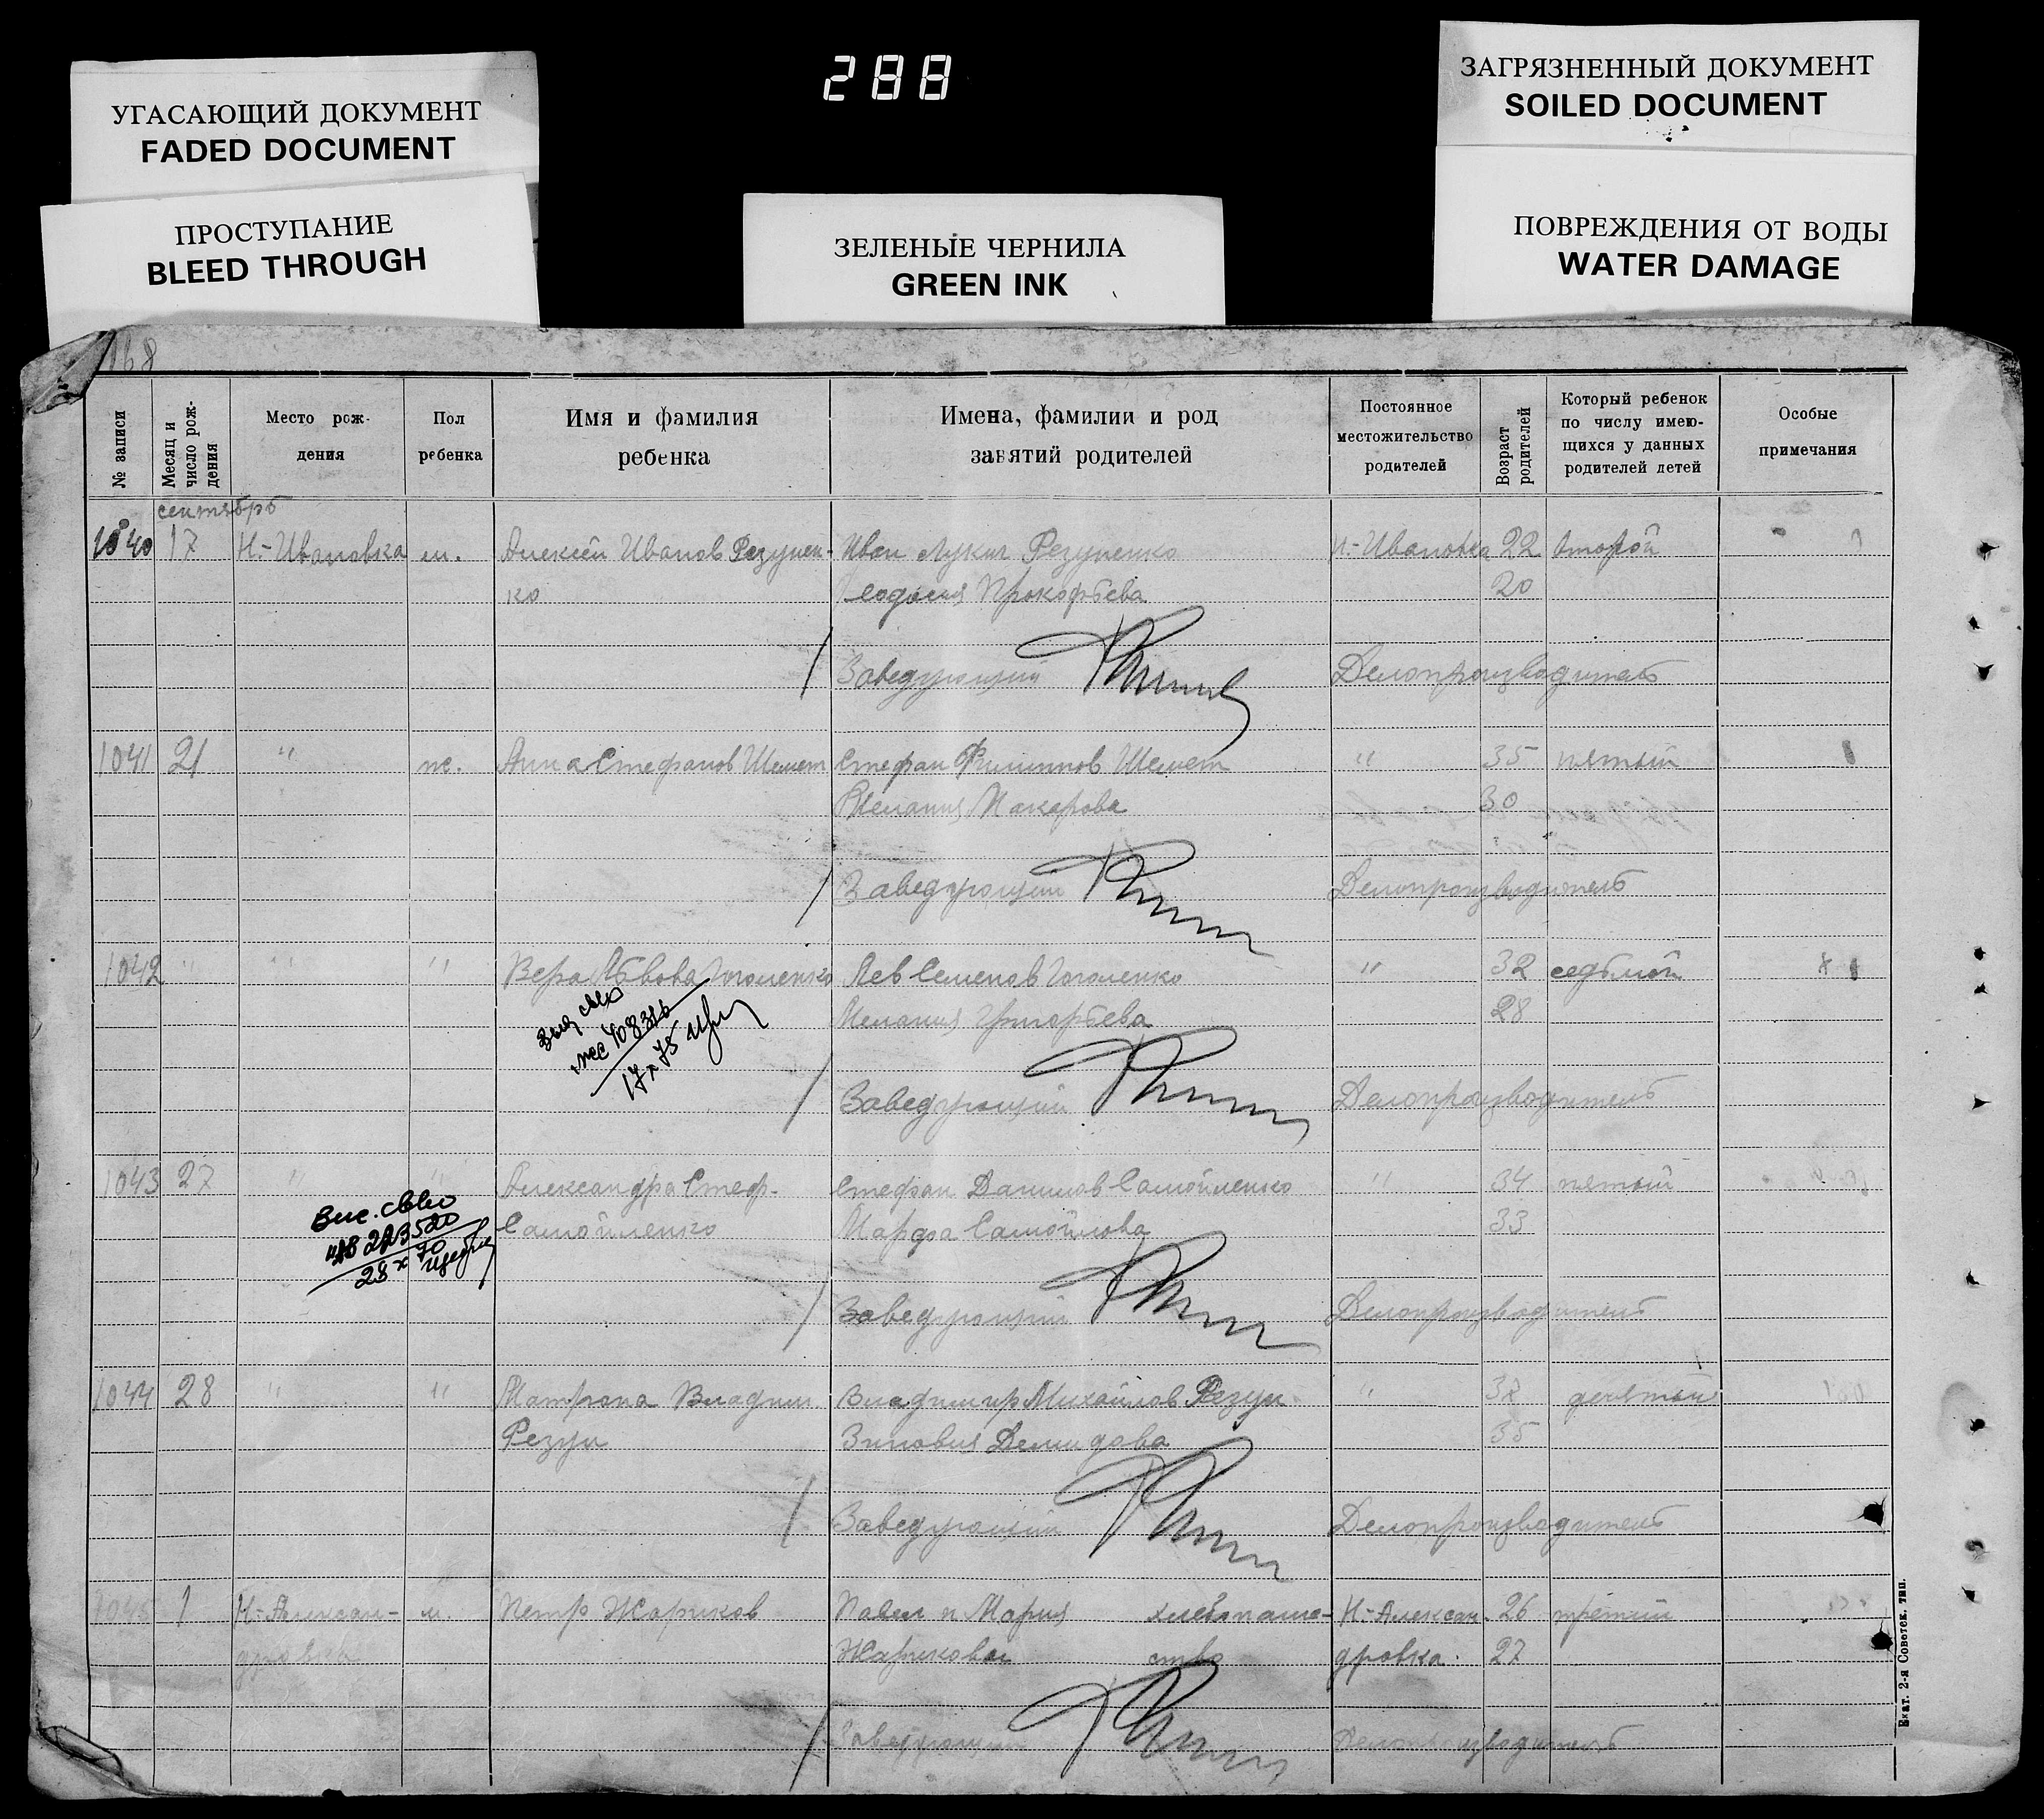 288
УГАСАЮЩИЙ ДОКУМЕНТ
FADED DOCUMENT
ПРОСТУПАНИЕ
BLEED THROUGH
ЗЕЛЕНЫЕ ЧЕРНИЛА
GREEN INK
ЗАГРЯЗНЕННЫЙ ДОКУМЕНТ
SOILED DOCUMENT
ПОВРЕЖДЕНИЯ ОТ ВОДЫ
WATER DAMAGE
168
№ записи
Месяц и
число рож-
дения
Место рож-
дения
Пол
ребенка
Имя и фамилия
ребенка
Имена, фамилии и род
занятий родителей
Постоянное
местожительство
родителей
Возраст
родителей
Который ребенок
по числу имею-
щихся у данных
родителей детей
Особые
примечания
сентябрь
1040 17 Н.-Ивановка м. Алексей Иванов Резунен- Иван Лукич Резуненко Н.-Ивановка 22 второй
ко Прокофьева 20
Заведующий Делопроизводитель
1041 21 " ж. Анна Стефанов Шемет Стефан Филиппов Шемет " 35 пятый
Мелания Макарова 30
Заведующий Делопроизводитель
1042 " " " Вера Львова Гоголенко Лев Семенов Гоголенко " 32 седьмой
Мелания Григорьева 28
Заведующий Делопроизводитель
1043 27 " " Александра Стеф. Стефан Данилов Самойленко " 34 пятый
Самойленко Марфа Самойлова 33
223520
Заведующий Делопроизводитель
1044 28 " " Матрона Владим. Владимир Михайлов Резун " 32
Резун Зиновия Демидова 35
Заведующий Делопроизводитель
1045 1 Н-Алексан- м. Петр Жариков Павел и Мария хлебопаше- Н-Алексан- 26 третий
дровка Жариковы ство дровка. 27
Заведующий Делопроизводитель
Екат. 2-я Советск. тип.